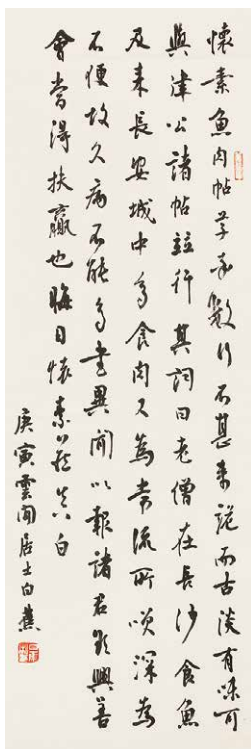 懷素魚肉帖草書數行不甚奇詭而古淡有味可
與律公諸帖並行其詞曰老僧在長沙食魚
及來長安城中多食肉又為常流所笑深為
不便故久病不能多書異聞以報諸君欲興善
會當得扶羸也晦日懷素藏真白
庚寅雲間居士白蕉